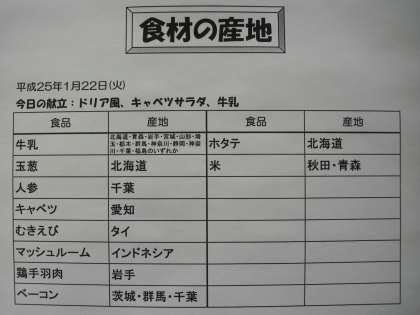 食材の産地
平成25年1月22日(火)
今日の献立：ドリア風、キャベツサラダ、牛乳
食品 産地 食品 産地
牛乳 北海道・青森・岩手・宮城・山形・埼
玉・栃木・群馬・神奈川・静岡・神奈
川・千葉・福島のいずれか ホタテ 北海道
玉葱 北海道 米 秋田・青森
人参 千葉
キャベツ 愛知
むきえび タイ
マッシュルーム インドネシア
鶏手羽肉 岩手
ベーコン 茨城・群馬・千葉